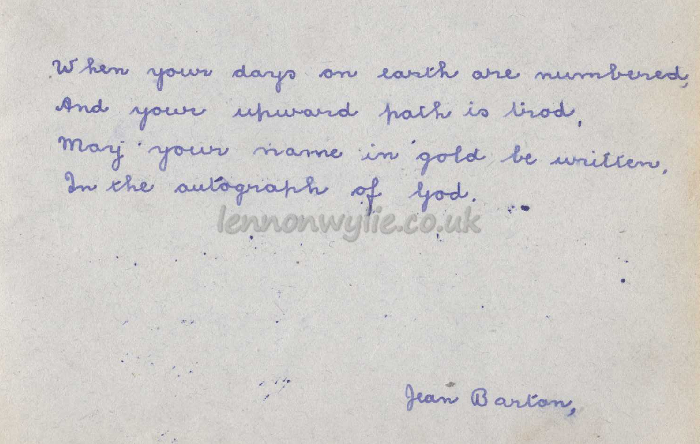 When your days on earth are numbered,
And your upward path is trod,
May your name in gold be written,
In the autograph of God.
lennonwylie.co.uk
Jean Barton,